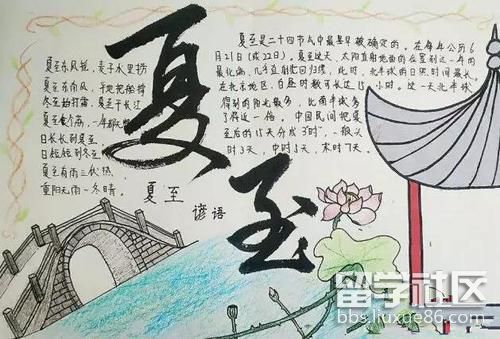 夏至
夏至东风摇，麦子水里捞
夏至东南风，于地把船撑
冬至始打霜，夏至干长江
夏至食个荔，一年都无弊
日长长到夏至
日短短到冬至
夏至有雨三伏热
重阳无雨一冬晴。
夏至
谚语
夏至是二十四节气中最早被确定的。在每年公历6
月21日(或22日)。夏至这天，太阳直射地面的位置到达一年的
最北端，几乎直射北回归线，此时，北半球的日照时间最长，
在北方地区，白昼时数可长达15小时。这一天北半球
得到的阳光最多，比南半球多
了将近一倍。中国民间把夏
至后的15天分成3"时"，一般头
时3天，中时5天，末时7天。
留学社区
bbs.liuxue86.com